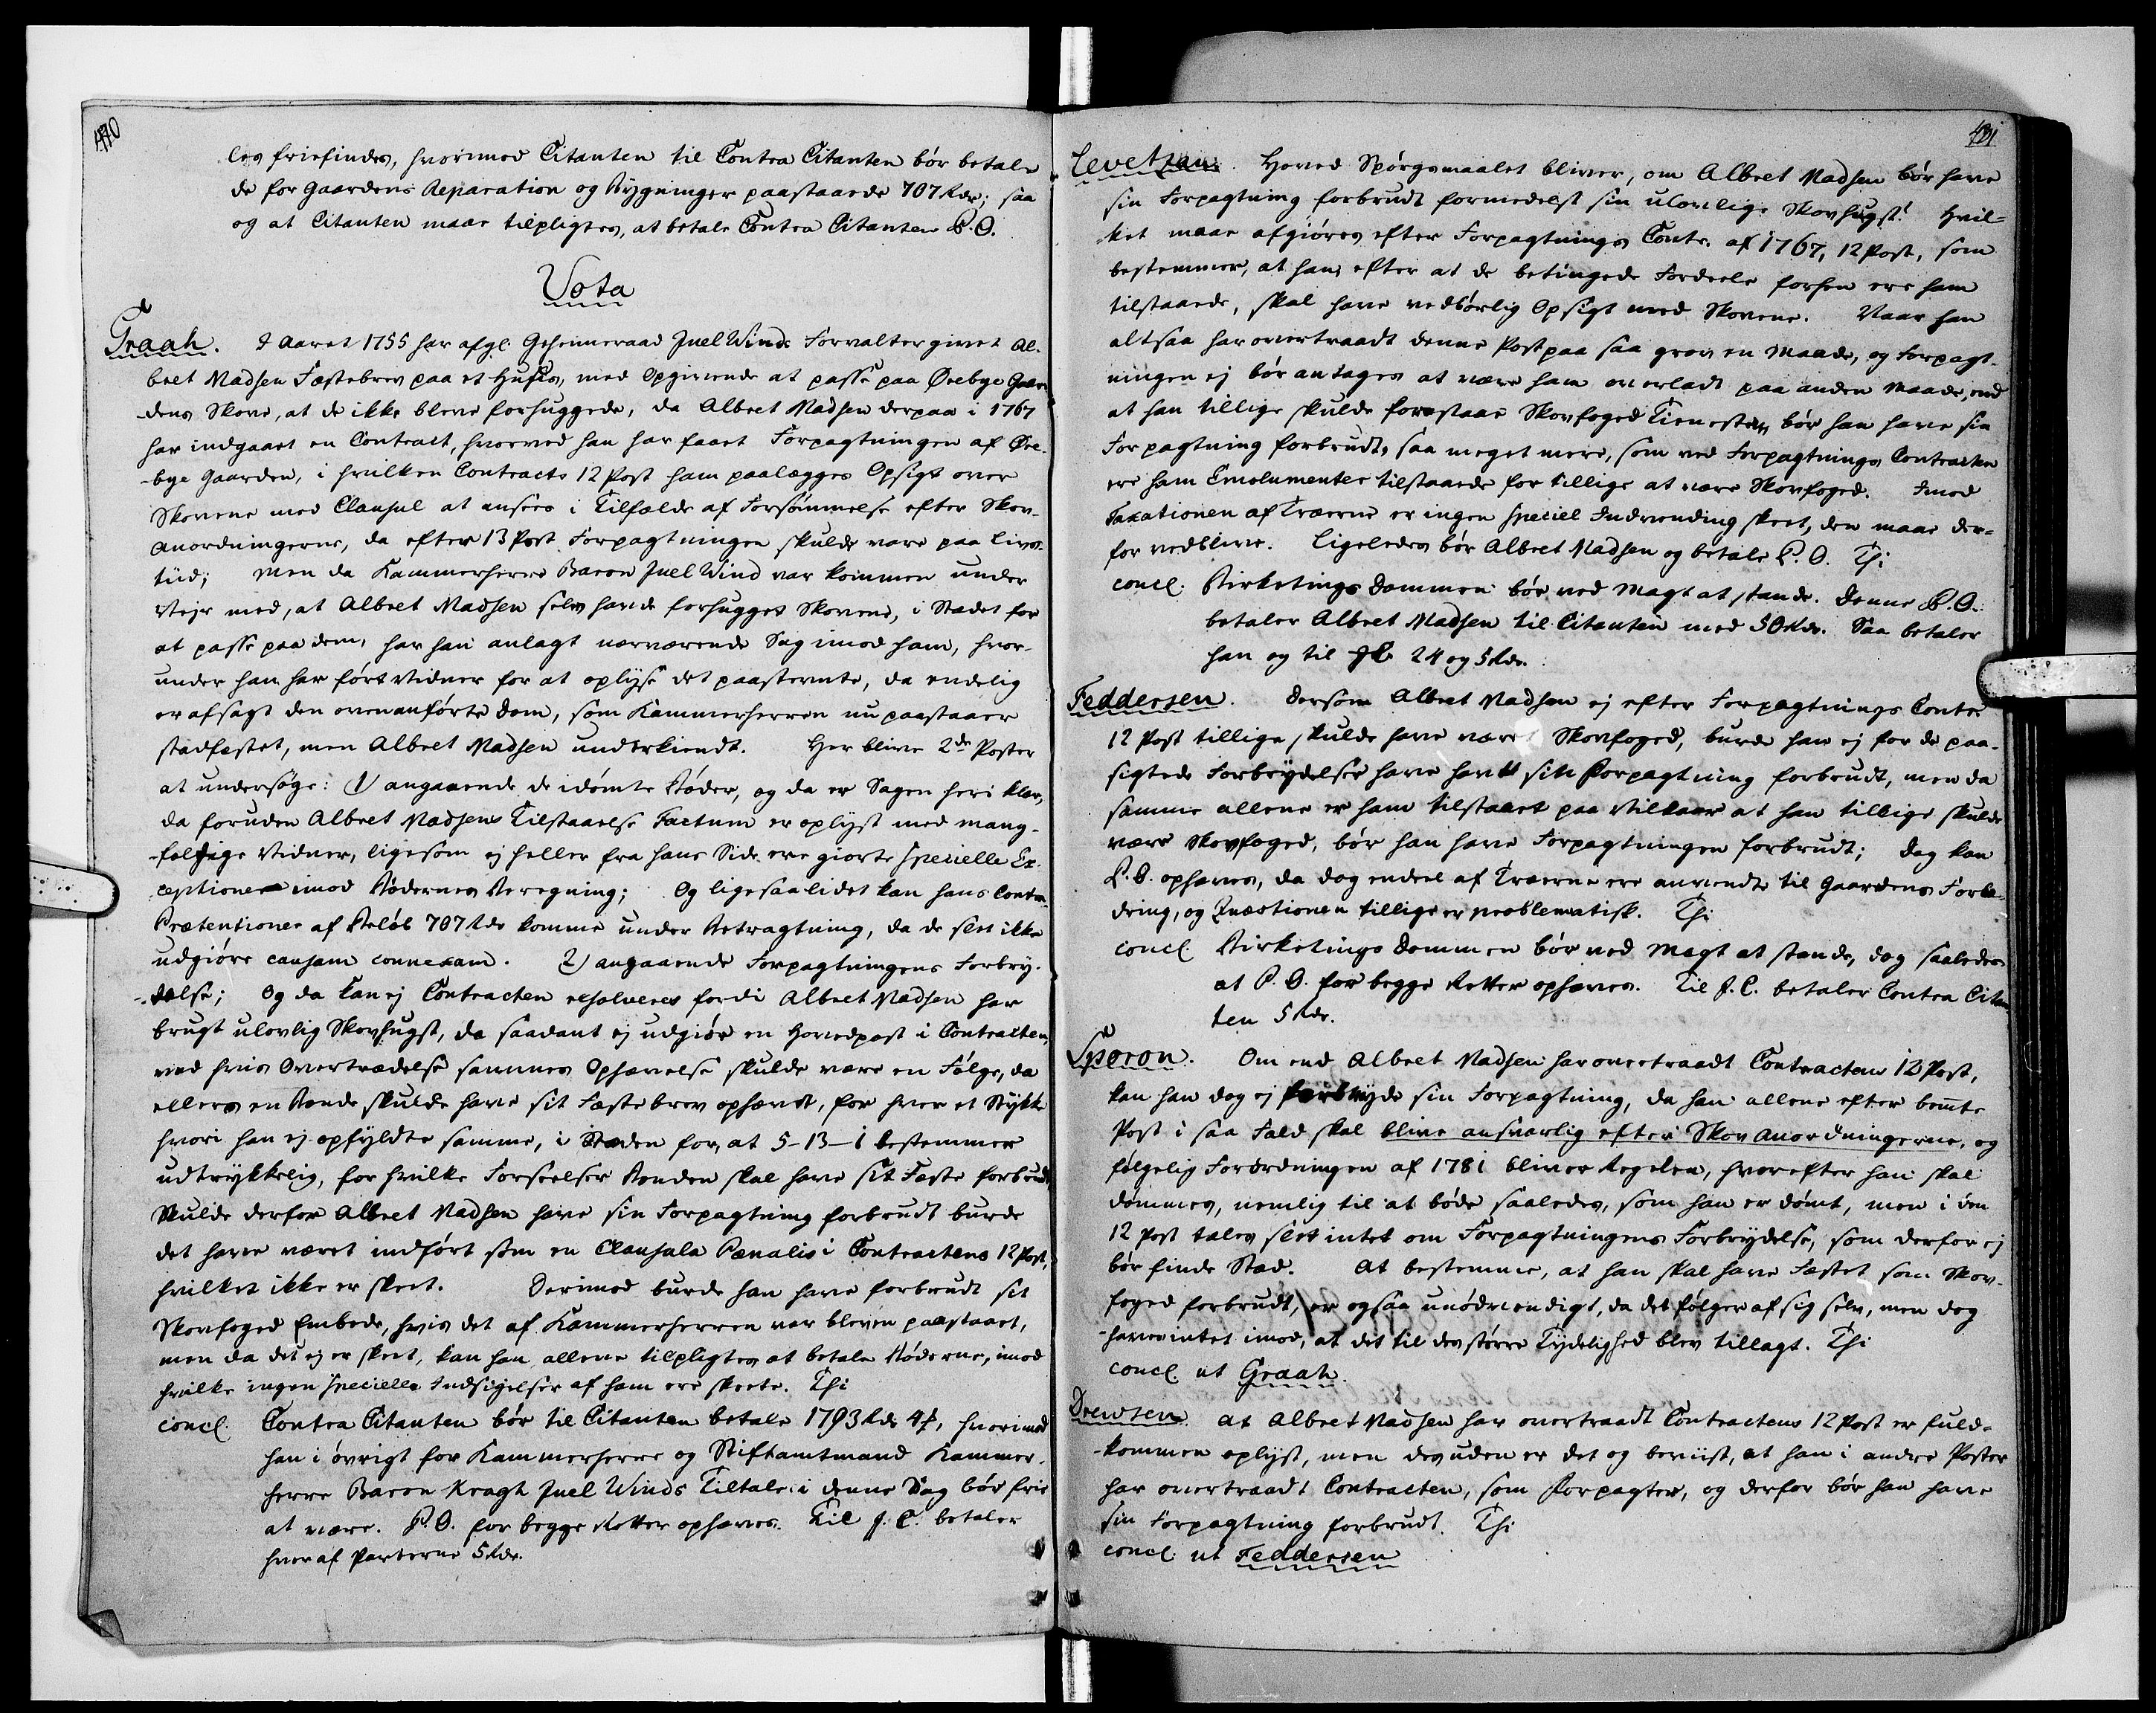 470
les friefindes, hvorimod Citanten til Contra Citanten bør betale
de for Gaardens Reparation og Bygninger paastaaede 707 Rdr; saa
og at Citanten maae tilpligtes, at betale Contra Citanten P.O.
Vota
Graah. I Aaret 1755 har afgl. Geheimeraad Juel Winds Forvalter givet Al-
bret Madsen Fæstebrev paa et Huus, med Opgivende at passe paa Ørebye Gaar-
dens Skove, at de ikke bleve forhuggede, da Albret Madsen derpaa i 1767
har indgaaet en Contract, hvorved han har faaet Forpagtningen af Øre-
bye Gaarden, i hvilken Contracts 12 Post ham paalægges Opsigt over
Skovene med Clausul at ansees i Tilfælde af Forsømmelse efter Skov-
Anordningerne, da efter 13 Post Forpagtningen skulde vare paa Livs-
tiid; Men da Kammerherre Baron Juel Wind var kommen under
Vejr med, at Albret Madsen selv havde forhugget Skovene, i Stædet for
at passe paa dem, har han anlagt nærværende Sag imod ham, hvor-
under han har ført Vidner for at oplyse det paastevnte, da endelig
er afsagt den ovenanførte Dom, som Kammerherren nu paastaaer
stadfæstet, men Albret Madsen underkiendt. Her blive 2de Poster
at undersøge: 1) angaaende de idømte Bøder, og da er Sagen heri klar,
da foruden Albret Madsens Tilstaaelse Factum er oplyst med mang-
foldige Vidner, ligesom ej heller fra hans Side ere giorte specielle Ex-
ceptioner imod Bødernes Beregning; Og ligesaalidet kan hans Contra
Prætentioner af Beløb 707 Rdr komme under Betragtning, da de slet ikke
udgiøre causam connexam. 2) angaaende Forpagtningens Forbry-
delse; Og da kan ej Contracten exsolveres fordi Albret Madsen har
brugt ulovlig Skovhugst, da saadant ej udgiør en Hovedpost i Contracten,
ved hvis Overtrædelse sammes Ophævelse skulde være en Følge, da
ellers en Bonde skulde have sit Fæstebrev ophævet, for hver et Stykke
hvori han ej opfyldte samme, i Stæden for, at 5-13-1 bestemmer
udtrykkelig, for hvilke Forseelser Bonden skal have sit Fæste forbrudt
Skulde derfor Albret Madsen have sin Forpagtning forbrudt burde
det have været indført som en Clausula Poenalis i Contractens 12 Post,
hvilket ikke er skeet. Derimod burde han have forbrudt sit
Skovfoged Embede, hvis det af Kammerherren var bleven paastaaet,
men da det ej er skeet, kan han allene tilpligtes at betale Bøderne, imod
hvilke ingen specielle Indsigelser af ham ere skeete. Thi
concl. Contra Citanten bør til Citanten betale 1793 Rdr 4 ß, hvorimod
han i øvrigt for Kammerherre og Stiftamtmand Kammer-
herre Baron Kragh Juel Winds Tiltale i denne Sag bør frie
at være. P.O. for begge Retter ophæves. Til J.C. betaler
hver af Parterne 5 Rdr.
471
Levetzau. Hoved Spørgsmaalet bliver, om Albret Madsen bør have
sin Forpagtning forbrudt formedelst sin ulovlige Skovhugst? Hvil-
ket maae afgiøres efter Forpagtnings Contr. af 1767, 12 Post, som
bestemmer, at han, efter at de betingede Fordeele forhen ere ham
tilstaaede, skal have vedbørlig Opsigt med Skovene. Naar han
altsaa har overtraadt denne Post paa saa grov en Maade, og Forpagt-
ningen ej bør antages at være ham overladt paa anden Maade, end
at han tillige skulde forestaae Skovfoged Tienesten, bør han have sin
Forpagtning forbrudt, saa meget mere, som ved Forpagtnings Contracten
ere ham Emolumenter tilstaaede for tillige at være Skovfoged. Imod
Taxationen af Træerne er ingen speciel Indvending skeet, den maae der-
for vedblive. Ligeledes bør Albret Madsen og betale P.O. Thi
concl. Birketings Dommen bør ved Magt at stande. Denne P.O.
betaler Albret Madsen til Citanten med 50 Rdr. Saa betaler
han og til J.C. 24 og 5 Rdr.
Feddersen. Dersom Albret Madsen ej efter Forpagtnings Contr.
12 Post tillige skulde have været Skovfoged, burde han ej for de paa-
sigtede Forbrydelser have havt sin Forpagtning forbrudt, men da
samme allene er ham tilstaaet paa Vilkaar at han tillige skulde
være Skovfoged, bør han have Forpagtningen forbrudt; Dog kan
P.O. ophæves, da dog endeel af Træerne ere anvendte til Gaardens Forbe-
dring, og Quæstionen tillige er problematisk. Thi
concl. Birketings Dommen bør ved Magt at stande, dog saaledes
at P.O. for begge Retter ophæves. Til J.C. betaler Contra Citan-
ten 5 Rdr.
Sporon. Om end Albret Madsen har overtraadt Contractens 12 Post,
kan han dog ej forbryde sin Forpagtning, da han allene efter bemte
Post i saa Fald skal blive ansvarlig efter Skov Anordningerne, og
følgelig Forordningen af 1781 bliver Regelen, hvorefter han skal
dømmes, nemlig til at bøde saaledes, som han er dømt, men i den
12 Post tales slet intet om Forpagtningens Forbrydelse, som derfor ej
bør finde Stæd. At bestemme, at han skal have Fæstet som Skov-
foged forbrudt, er ogsaa unødvendigt, da det følger af sig selv, men dog
haves intet imod, at det til des større Tydelighed blev tillagt. Thi
concl. ut Graah.
Drewsen. At Albret Madsen har overtraadt Contractens 12 Post er fuld-
kommen oplyst, men desuden er det og beviist, at han i andre Poster
har overtraadt Contracten, som Forpagter, og derfor bør han have
sin Forpagtning forbrudt. Thi
concl. ut Feddersen